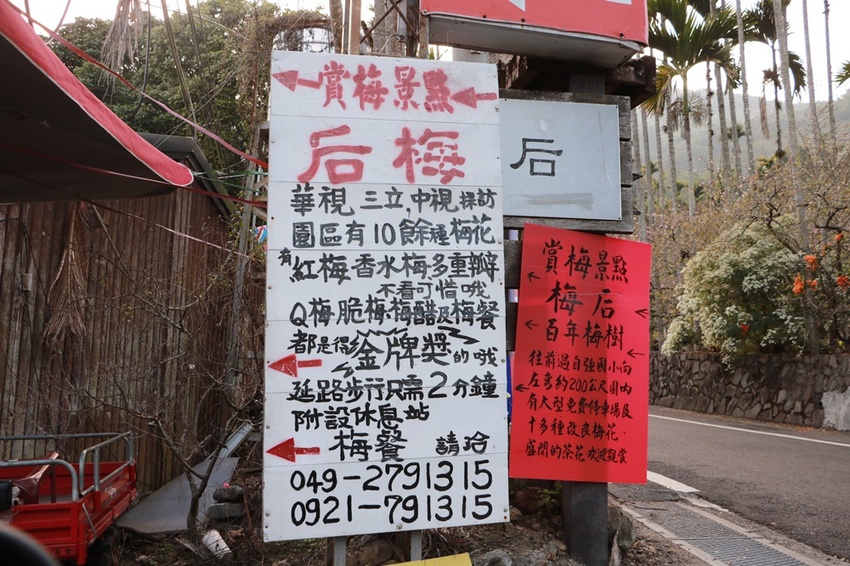 賞梅景點
后梅
華視、三立、中視採訪
園區有10餘種梅花
有紅梅、香水梅、多重瓣
不看可惜哦
Q梅、脆梅、梅醋及梅餐
都是得金牌獎的哦
延路步行只需2分鐘
附設休息站
梅餐 請洽
049-2791315
0921-791315
后
賞梅景點
梅后
百年梅樹
往前過自強國小向
左彎約200公尺園內
有大型免費停車場及
十多種改良梅花、
盛開的茶花歡迎觀賞